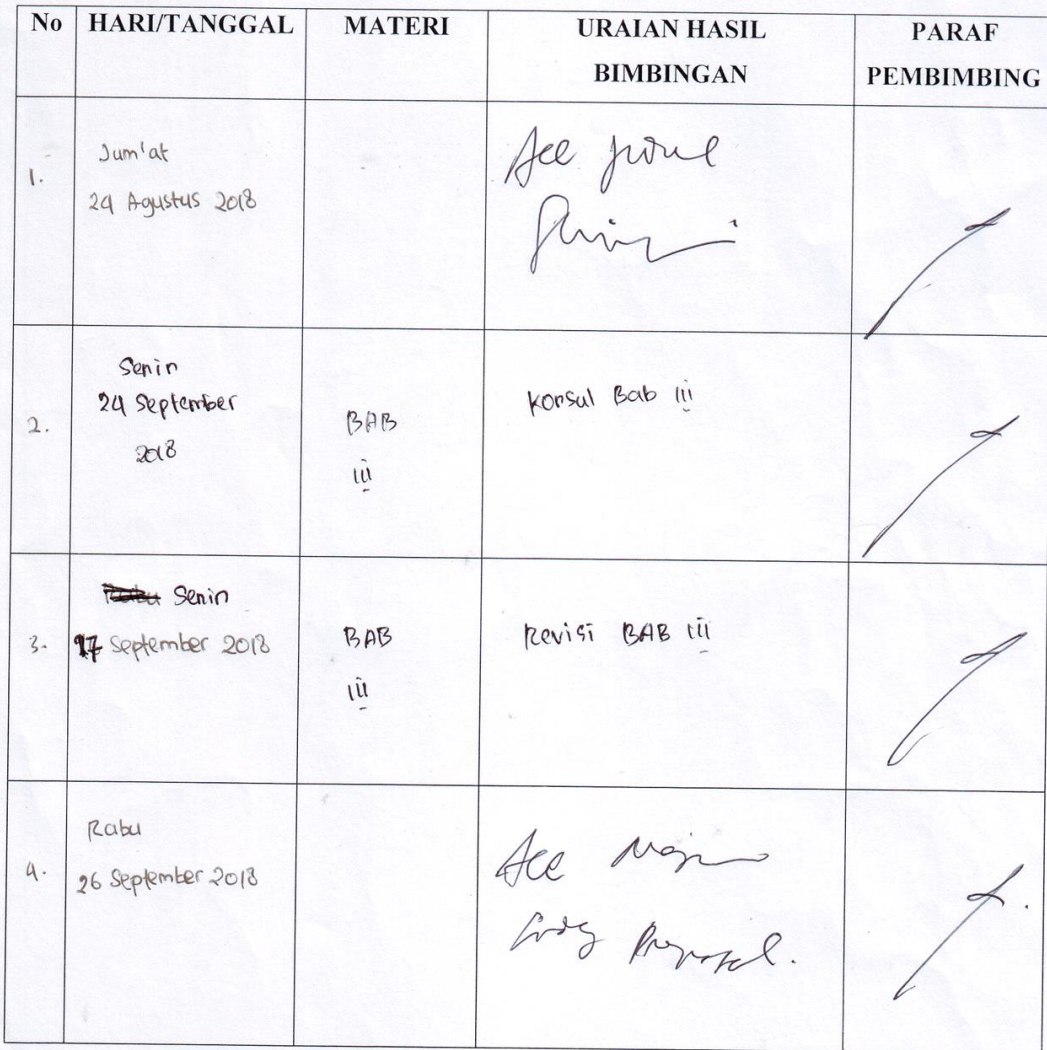 No HARI/TANGGAL MATERI URAIAN HASIL BIMBINGAN PARAF PEMBIMBING
1.
Jum'at
24 Agustus 2018
Acc judul
Skripsi
2.
Senin
24 September
2018
BAB
iii
Konsul Bab iii
3.
Senin
17 September 2018
BAB
iii
Revisi BAB iii
4.
Rabu
26 September 2018
Acc
Proposal.